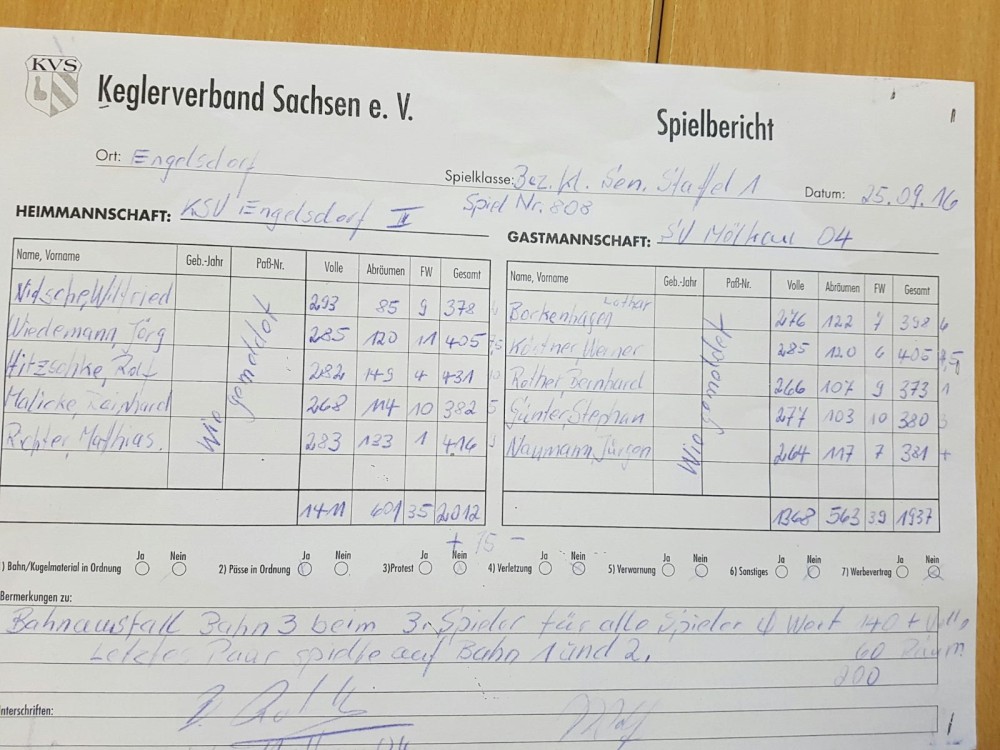 KVS
Keglerverband Sachsen e. V.
Spielbericht
Ort: Engelsdorf
Spielklasse: Bez. Kl. Sen. Staffel 1
Datum: 25.09.16
Spiel Nr. 808
HEIMMANNSCHAFT: KSV Engelsdorf II
GASTMANNSCHAFT: SV Mölkau 04
Name, Vorname Geb.-Jahr Paß-Nr. Volle Abräumen FW Gesamt
Nidsche, Wilfried 293 85 9 378
Wiedemann, Jörg 285 120 11 405
Hitzschke, Rolf 282 149 4 431
Malicke, Reinhard 268 114 10 382 5
Richter, Mathias. 283 133 1 416 9
Wie gemeldet
1411 601 35 2012
Name, Vorname Geb.-Jahr Paß-Nr. Volle Abräumen FW Gesamt
Borkenhagen Lothar 276 122 7 398 6
Köstner, Werner 285 120 6 405 7,5
Rother, Bernhard 266 107 9 373 1
Günter, Stephan 277 103 10 380 3
Naumann, Jürgen 264 117 7 381
Wie gemeldet
1368 563 39 1937
+ 75 -
1) Bahn/Kugelmaterial in Ordnung Ja Nein
2) Pässe in Ordnung Ja Nein
3) Protest Ja Nein
4) Verletzung Ja Nein
5) Verwarnung Ja Nein
6) Sonstiges Ja Nein
7) Werbevertrag Ja Nein
Bermerkungen zu:
Bahnausfall Bahn 3 beim 3. Spieler für alle Spieler Wert 140 +
Letztes Paar spielte auf Bahn 1 und 2. 60 Räum
200
nterschriften: